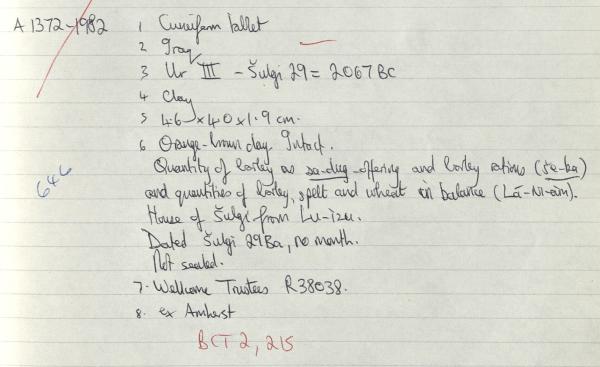 A 1372-1982
1 Cuneiform tablet
2 Iraq
3 Ur III - Šulgi 29 = 2067 BC
4 Clay
5 4.6 x 4.0 x 1.9 cm.
6 Orange-brown clay. Intact.
Quantity of barley as sa-dug-offering and barley rations (še-ba)
and quantities of barley, spelt and wheat in balance (Lá-NI-àm).
House of Šulgi from Lu-izu.
Dated Šulgi 29Ba, no month.
Not sealed.
7. Wellcome Trustees R38038.
8. ex Amherst
646
BCT 2, 215